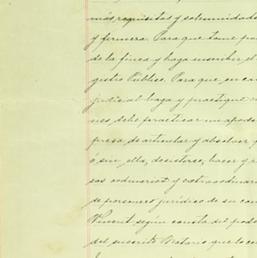 más requisitos y solemnidade
y firmeza. Para que tome po
de la finca y haga inscribir el
gistro Público. Para que, en ca
judicial haga y practique
nes debe practicar un apode
presa de articular y absolver
ó sin ella, desisterse, hacer y
sos ordinarios y extraordinari
de personería jurídica de su can
Vincent, según consta del pode
del suscrito Notario que lo c